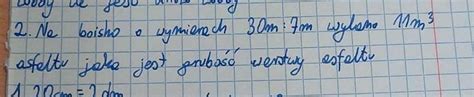 2. Na boisko o wymiarach 30m : 7m wylano 11m³
asfaltu jaka jest grubość warstwy asfaltu
1. 20cm = 2 dm